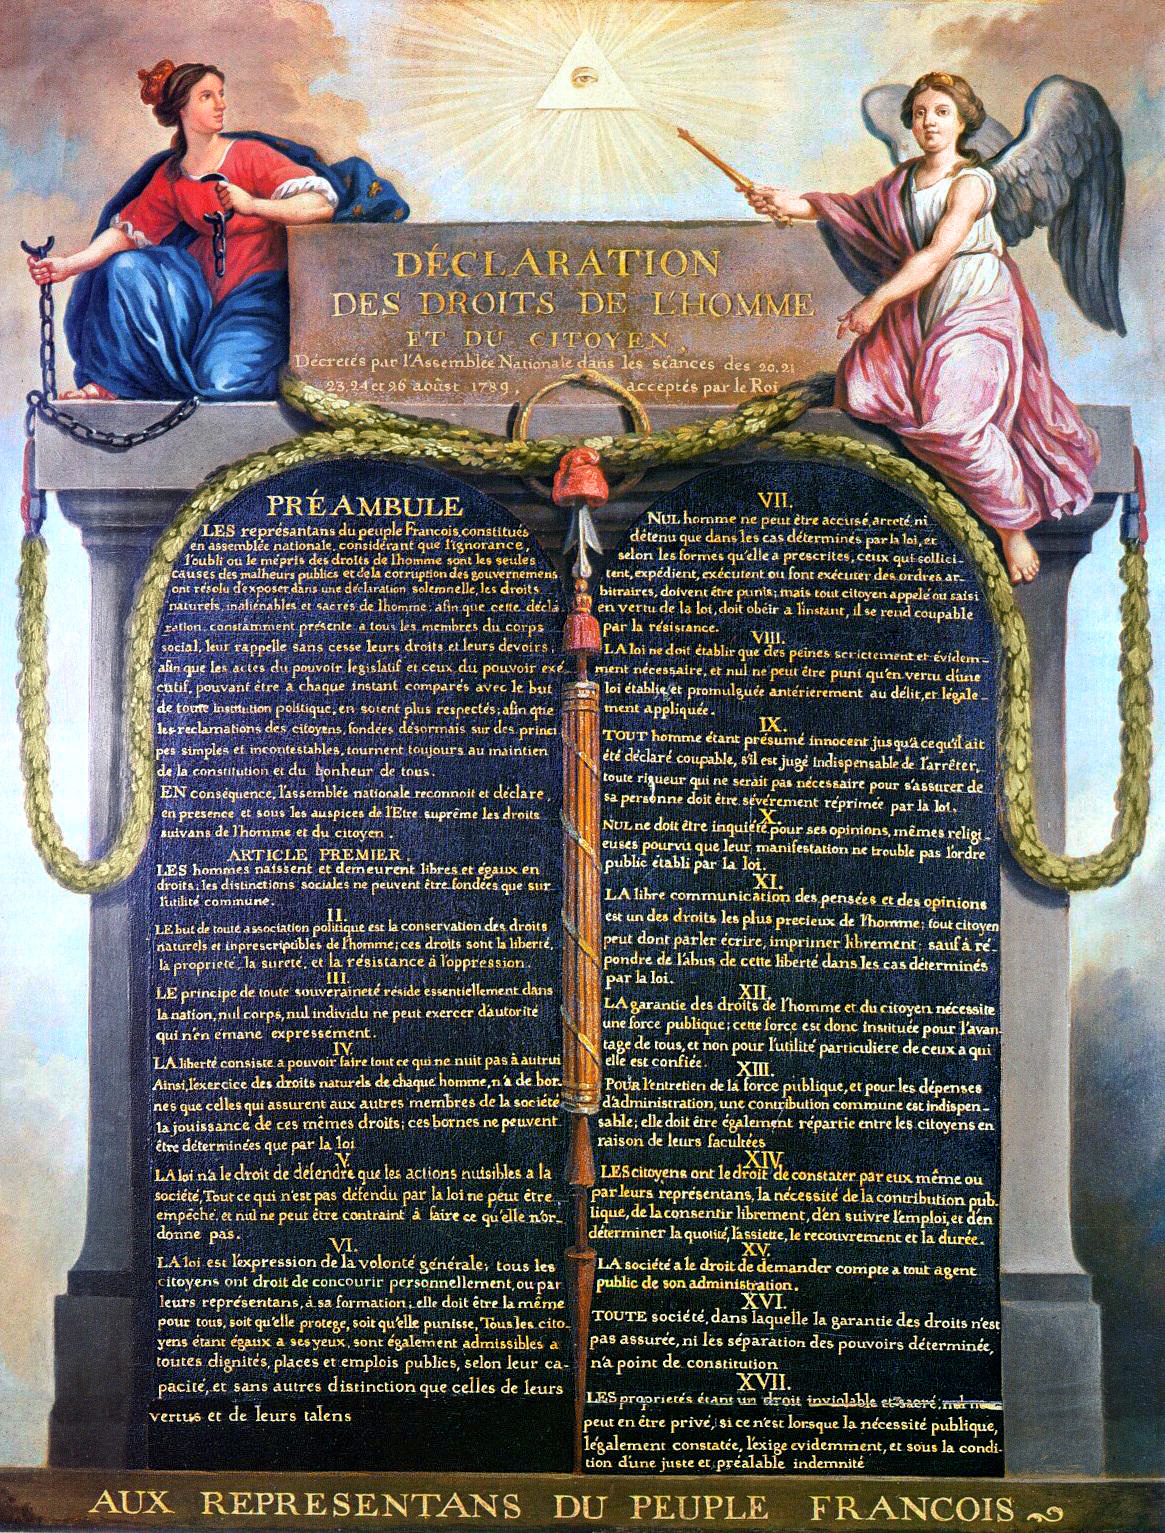 DÉCLARATION
DES DROITS DE L'HOMME
ET DU CITOYEN,
Décretés par l'Assemblée Nationale dans les séances des 20, 21
23, 24 et 26 août 1789, acceptés par le Roi
PRÉAMBULE
LES représantans du peuple François, constitués
en assemblée nationale, considérant que l'ignorance,
l'oubli ou le mépris des droits de l'homme sont les seules
causes des malheurs publics et de la corruption des gouvernemens
ont résolu d'exposer dans une déclaration solemnelle, les droits
naturels, inaliénables et sacrés de l'homme; afin que cette décla
ration, constamment présente a tous les membres du corps
social, leur rappelle sans cesse leurs droits et leurs devoirs;
afin que les actes du pouvoir législatif et ceux du pouvoir exé
cutif, pouvant être a chaque instant comparés avec le but
de toute institution politique, en soient plus respectés; afin que
les reclamations des citoyens, fondées désormais sur des princi
pes simples et incontestables, tournent toujours au maintien
de la constitution et du bonheur de tous.
EN conséquence, l'assemblée nationale reconnoit et déclare,
en presence et sous les auspices de l'Etre suprême les droits
suivans de l'homme et du citoyen.
ARTICLE PREMIER.
LES hommes naissent et demeurent libres et égaux en
droits; les distinctions sociales ne peuvent être fondées que sur
l'utilité commune.
II.
LE but de toute association politique est la conservation des droits
naturels et inprescriptibles de l'homme; ces droits sont la liberté,
la proprieté, la sureté, et la résistance à l'oppression.
III.
LE principe de toute souveraineté réside essentiellement dans
la nation, nul corps, nul individu ne peut exercer d'autorité
qui n'en emane expressement.
IV.
LA liberté consiste a pouvoir faire tout ce qui ne nuit pas à autrui
Ainsi, l'exercice des droits naturels de chaque homme, n'a de bor-
nes que celles qui assurent aux autres membres de la société
la jouissance de ces mêmes droits; ces bornes ne peuvent
être déterminées que par la loi
V.
LA loi n'a le droit de défendre que les actions nuisibles a la
société. Tout ce qui n'est pas défendu par la loi ne peut être
empêché, et nul ne peut être contraint à faire ce qu'elle n'or-
donne pas.
VI.
LA loi est l'expression de la volonté générale; tous les
citoyens ont droit de concourir personnellement, ou par
leurs représentans, à sa formation; elle doit être la même
pour tous, soit qu'elle protege, soit qu'elle punisse, Tous les cito-
yens étant égaux a ses yeux, sont également admissibles a
toutes dignités, places et emplois publics, selon leur ca-
pacité, et sans autres distinction que celles de leurs
vertus et de leurs talens
VII.
NUL homme ne peut être accusé, arreté, ni
détenu que dans les cas déterminés par la loi, et
selon les formes qu'elle a prescrites, ceux qui sollici-
tent, expédient, exécutent ou font exécuter des ordres ar-
bitraires, doivent être punis; mais tout citoyen appelé ou saisi
en vertu de la loi, doit obéir a l'instant, il se rend coupable
par la résistance.
VIII.
LA loi ne doit établir que des peines strictement et évidem-
ment nécessaire, et nul ne peut être puni qu'en vertu d'une
loi établie et promulguée antérierement au délit, et légale-
ment appliquée.
IX.
TOUT homme étant présumé innocent jusqu'a ce qu'il ait
été déclaré coupable, s'il est jugé indispensable de l'arrêter,
toute rigueur qui ne serait pas nécessaire pour s'assurer de
sa personne doit être sévérement réprimée par la loi.
X.
NUL ne doit être inquiété pour ses opinions, mêmes religi-
euses pourvu que leur manifestation ne trouble pas l'ordre
public établi par la loi.
XI.
LA libre communication des pensées et des opinions
est un des droits les plus precieux de l'homme; tout citoyen
peut dont parler écrire, imprimer librement; sauf à ré-
pondre de l'abus de cette liberté dans les cas déterminés
par la loi.
XII.
LA garantie des droits de l'homme et du citoyen nécessite
une force publique; cette force est donc instituée pour l'avan-
tage de tous, et non pour l'utilité particuliere de ceux a qui
elle est confiée.
XIII.
POUR l'entretien de la force publique, et pour les dépenses
d'administration, une contribution commune est indispen-
sable; elle doit être également répartie entre les citoyens en
raison de leurs facultées
XIV.
LES citoyens ont le droit de constater par eux même ou
par leurs représentans, la nécessité de la contribution pub-
lique, de la consentir librement, d'en suivre l'emploi, et d'en
déterminer la quotité, l'assiette, le recouvrement et la durée.
XV.
LA société a le droit de demander compte a tout agent
public de son administration.
XVI.
TOUTE société, dans laquelle la garantie des droits n'est
pas assurée, ni les séparation des pouvoirs déterminée,
n'a point de constitution
XVII.
LES proprietés étant un droit inviolable et sacré, nul ne
peut en être privé, si ce n'est lorsque la nécessité publique,
légalement constatée, l'exige evidemment, et sous la condi-
tion d'une juste et préalable indemnité
AUX REPRESENTANS DU PEUPLE FRANCOIS